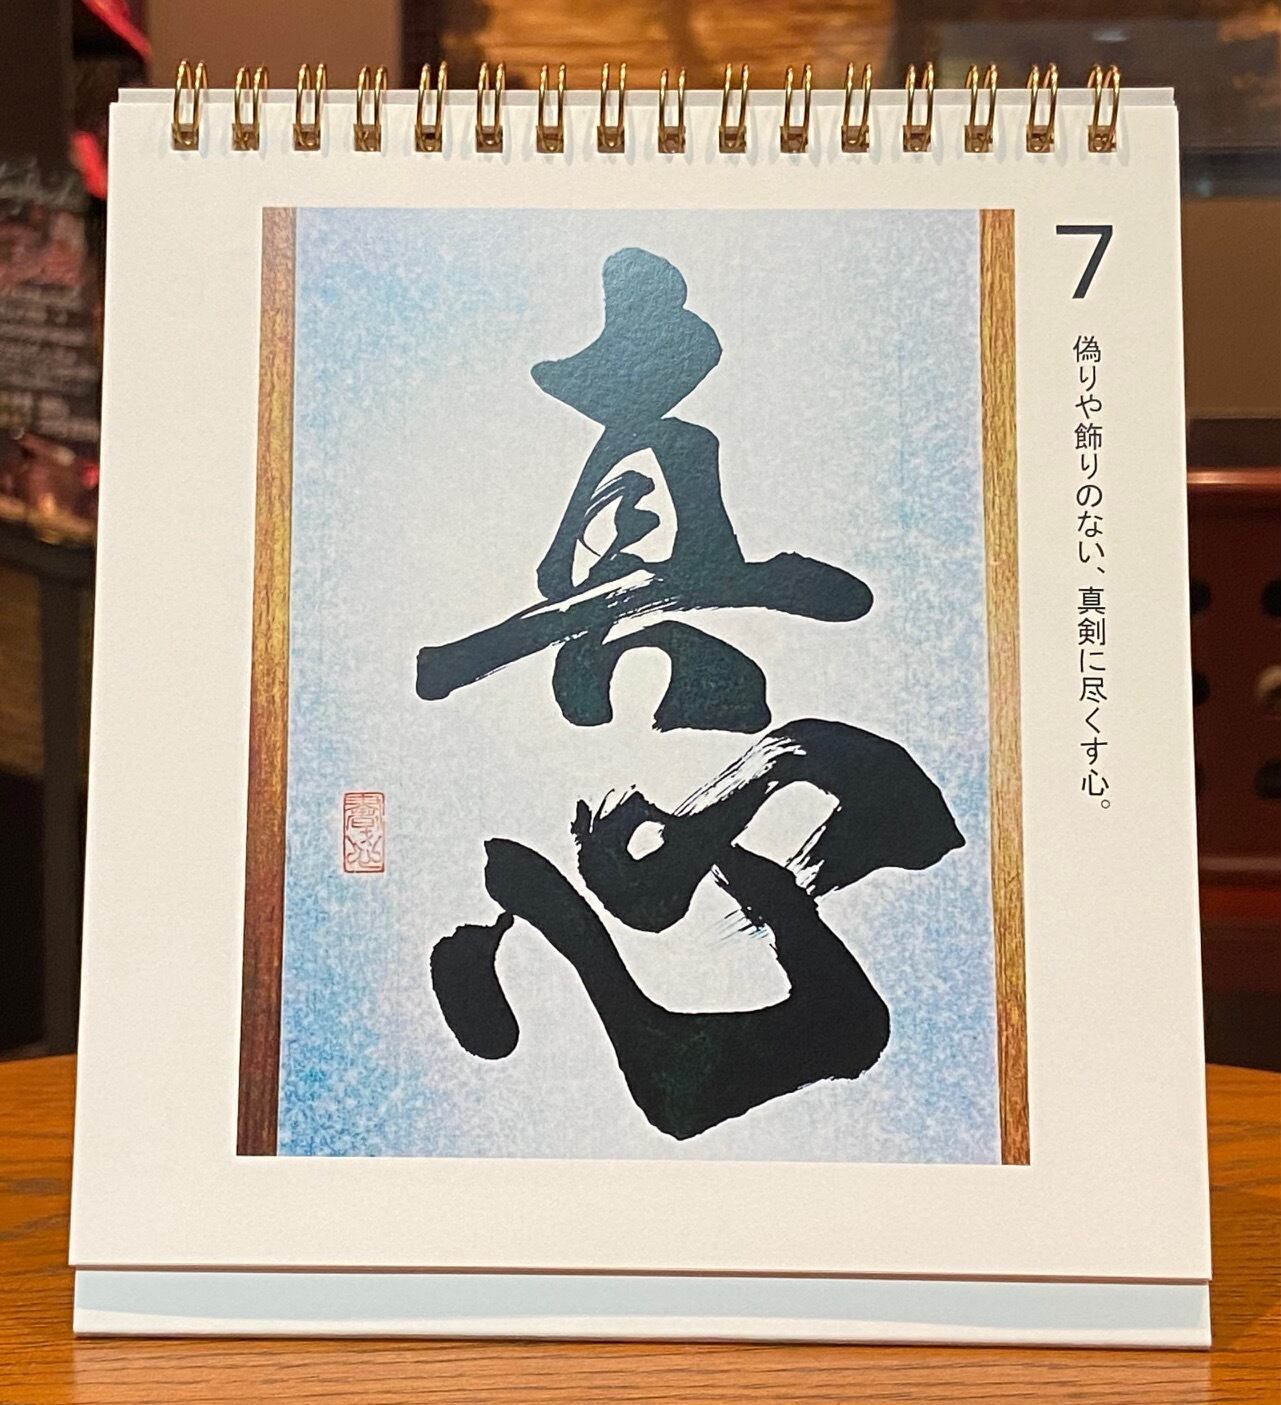 7
偽りや飾りのない、真剣に尽くす心。
真心